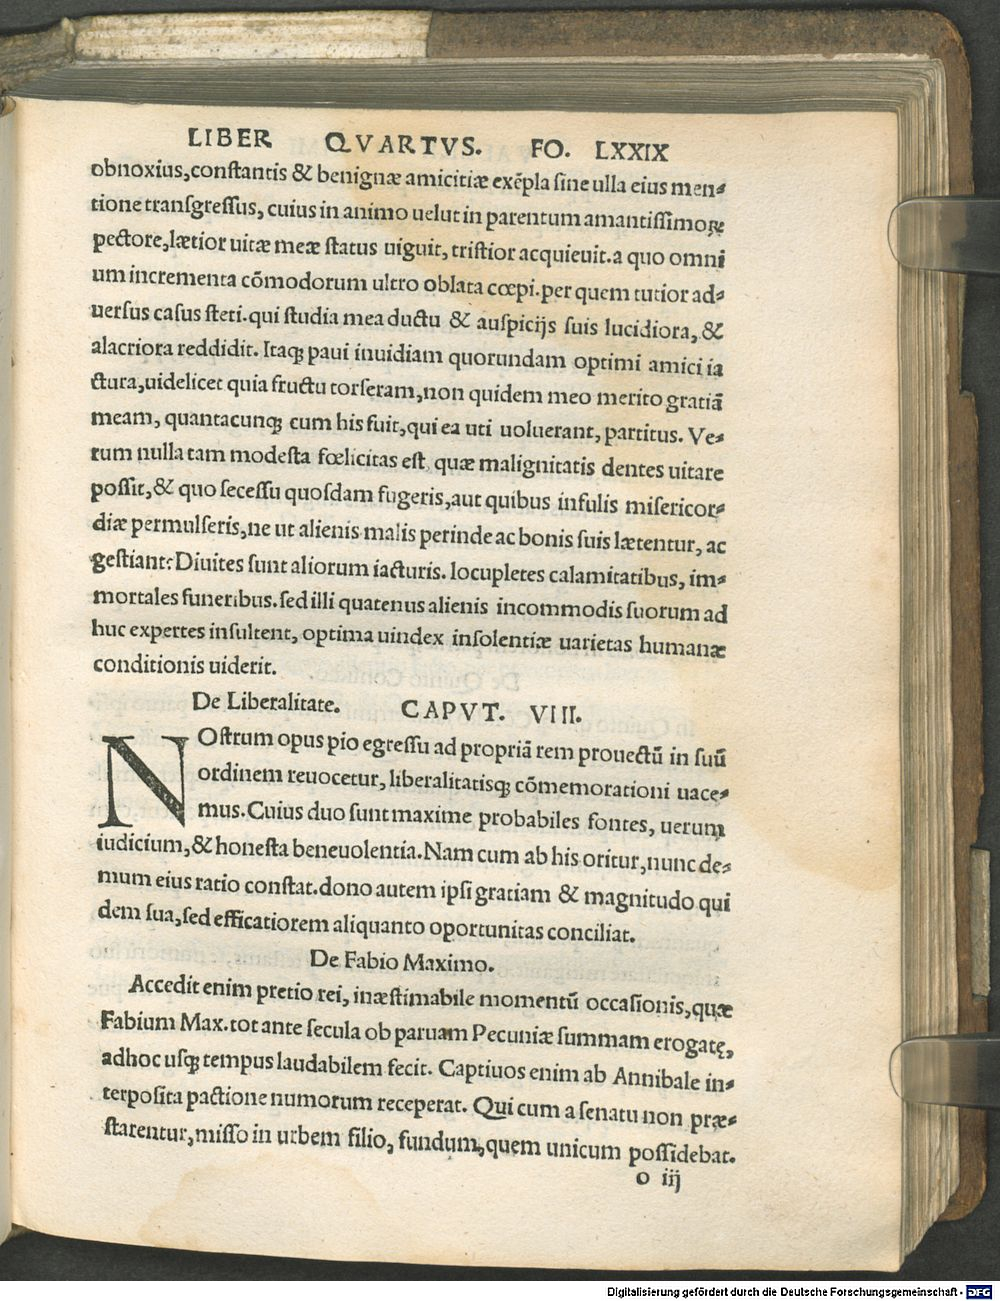 LIBER QVARTVS. FO. LXXIX
obnoxius,conſtantis & benignæ amicitiæ exẽpla ſine ulla eius men⸗
tione tranſgreſſus, cuius in animo uelut in parentum amantiſſimoꝝ
pectore,lætior uitæ meæ ſtatus uiguit, triſtior acquieuit.a quo omni
um incrementa cõmodorum ultro oblata cœpi.per quem tutior ad⸗
uerſus caſus ſteti.qui ſtudia mea ductu & auſpicijs ſuis lucidiora, &
alacriora reddidit. Itaqꝫ paui inuidiam quorundam optimi amici ia
ctura,uidelicet quia fructu torſeram,non quidem meo merito gratiã
meam, quantacunqꝫ cum his fuit,qui ea uti uoluerant, partitus. Ve⸗
rum nulla tam modeſta fœlicitas eſt, quæ malignitatis dentes uitare
poſſit,& quo ſeceſſu quoſdam fugeris,aut quibus infulis miſericor⸗
diæ permulſeris,ne ut alienis malis perinde ac bonis ſuis lætentur, ac
geſtiant? Diuites ſunt aliorum iacturis. locupletes calamitatibus, im⸗
mortales funeribus.ſed illi quatenus alienis incommodis ſuorum ad
huc expertes inſultent, optima uindex inſolentiæ uarietas humanæ
conditionis uiderit.
De Liberalitate. CAPVT. VIII.
NOſtrum opus pio egreſſu ad propriã rem prouectũ in ſuũ
ordinem reuocetur, liberalitatisqꝫ cõmemorationi uace⸗
mus. Cuius duo ſunt maxime probabiles fontes, uerum
iudicium,& honeſta beneuolentia.Nam cum ab his oritur,nunc de⸗
mum eius ratio conſtat.dono autem ipſi gratiam & magnitudo qui
dem ſua,ſed efficatiorem aliquanto oportunitas conciliat.
De Fabio Maximo.
Accedit enim pretio rei, inæſtimabile momentũ occaſionis,quæ
Fabium Max. tot ante ſecula ob paruam Pecuniæ ſummam erogatę,
adhoc uſqꝫ tempus laudabilem fecit. Captiuos enim ab Annibale in⸗
terpoſita pactione numorum receperat. Qui cum a ſenatu non præ⸗
ſtarentur,miſſo in urbem filio, fundum,quem unicum poſſidebat.
o iij
Digitalisierung gefördert durch die Deutsche Forschungsgemeinschaft - DFG